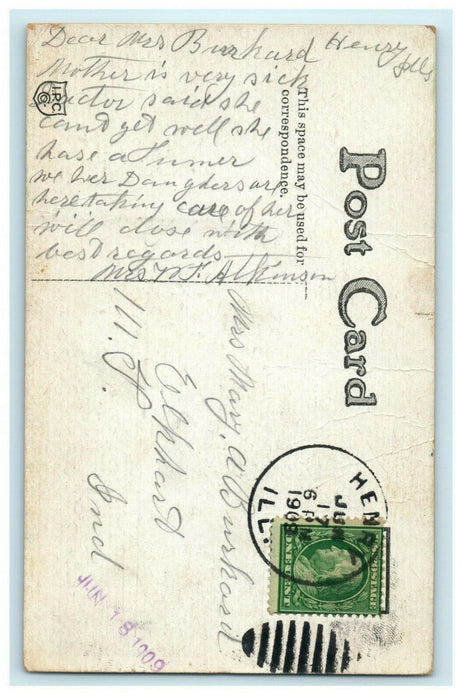 Dear Mrs Burkard Henry
Ills
Mother is very sick
Doctor said she
cant get well she
hase a Tumer
we her Daughters are
here taking care of her
will close with
best regards
Mrs Atkinson
This space may be used for
correspondence.
Post Card
I.P.C.
Mrs Mary. A Burkard
Elkhart
Ind
HENRY
JUN
17
6 PM
1909
ILL.
JUN 18 1909